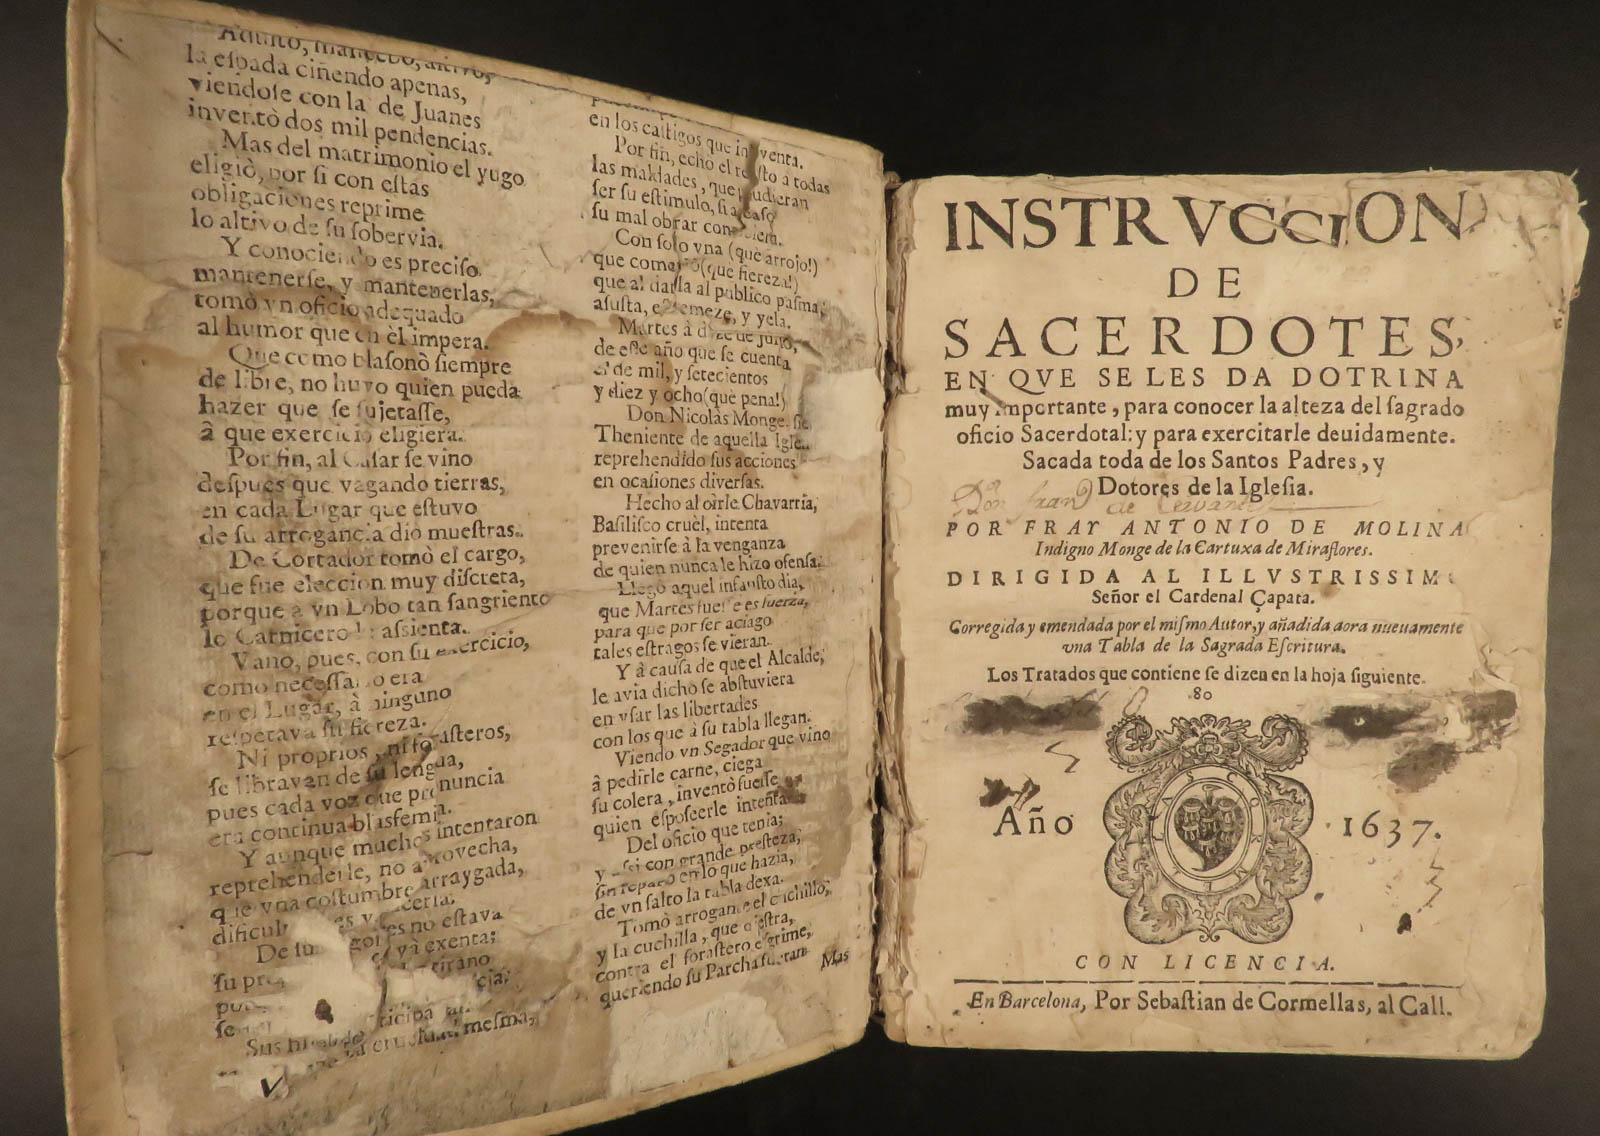 Adulto, mancebo, altivo,
la eſpada ciñendo apenas,
viendoſe con la de Juanes
inventò dos mil pendencias.
Mas del matrimonio el yugo
eligiò, por ſi con eſtas
obligaciones reprime
lo altivo de ſu ſobervia.
Y conociendo es preciſo
mantenerſe, y mantenerlas,
tomò vn oficio adequado
al humor que en èl impera.
Que como blaſonò ſiempre
de libre, no huvo quien pueda
hazer que ſe ſujetaſſe,
â que exercicio eligiera.
Por fin, al Caſar ſe vino
deſpues que vagando tierras,
en cada Lugar que eſtuvo
de ſu arrogancia diò mueſtras.
De Cortador tomò el cargo,
que fue eleccion muy diſcreta,
porque a vn Lobo tan ſangriento
lo Carnicero le aſsienta.
Vano, pues, con ſu exercicio,
como neceſſario era
en el Lugar, à ninguno
reſpetava ſu fiereza.
Ni proprios, ni foraſteros,
ſe libravan de ſu lengua,
pues cada voz que pronuncia
era continua blasfemia.
Y aunque muchos intentaron
reprehenderle, no aprovecha,
que vna coſtumbre arraygada,
no eſtava
yà exenta;
tirano
meſma,
en los caſtigos que inventa.
Por fin, echò el reſto a todas
las maldades, que pudieran
ſer ſu eſtimulo, ſi acaſo
ſu mal obrar
Con ſolo vna (què arrojo!)
que cometiò (què fiereza!)
que al darſla al publico paſma,
aſuſta, eſtremeze, y yela.
Martes â doze de Julio,
de eſte año que ſe cuenta
de mil, y ſetecientos
y diez y ocho (què pena!)
Don Nicolàs Monge,
Theniente de aquella
reprehendido ſus acciones
en ocaſiones diverſas.
Hecho al oìrle Chavarria,
Baſiliſco cruèl, intenta
prevenirſe à la venganza
de quien nunca le hizo ofenſa.
Llegò aquel infauſto dia,
que Martes fueſſe es fuerza,
para que por ſer aciago
tales eſtragos ſe vieran.
Y à cauſa de que el Alcalde,
le avia dicho ſe abſtuviera
en vſar las libertades
con los que à ſu tabla llegan.
Viendo vn Segador que vino
â pedirle carne, ciega
ſu colera, inventò fueſſe
quien eſpoſeerle intenta
Del oficio que tenia;
y aſsi con grande preſteza,
ſin reparo en lo que hazia,
de vn ſalto la tabla dexa.
Tomò arrogante el cuchillo,
y la cuchilla, que
contra el foraſtero eſgrime,
queriendo ſu Parcha fueran
Mas
INSTRVCCION
DE
SACERDOTES,
EN QVE SE LES DA DOTRINA
muy importante, para conocer la alteza del ſagrado
oficio Sacerdotal: y para exercitarle deuidamente.
Sacada toda de los Santos Padres, y
Dotores de la Igleſia.
POR FRAY ANTONIO DE MOLINA
Indigno Monge de la Cartuxa de Miraflores.
DIRIGIDA AL ILLVSTRISSIM
Señor el Cardenal Çapata.
Corregida y emendada por el miſmo Autor, y añadida aora nueuamente
vna Tabla de la Sagrada Eſcritura.
Los Tratados que contiene ſe dizen en la hoja ſiguiente.
80
Año 1637.
CON LICENCIA.
En Barcelona, Por Sebaſtian de Cormellas, al Call.